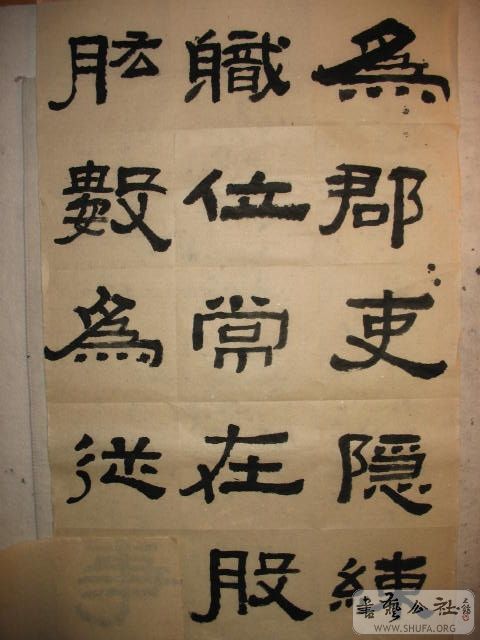 爲郡吏隱練
職位常在股
肱數爲從
書藝公社
WWW.SHUFA.ORG